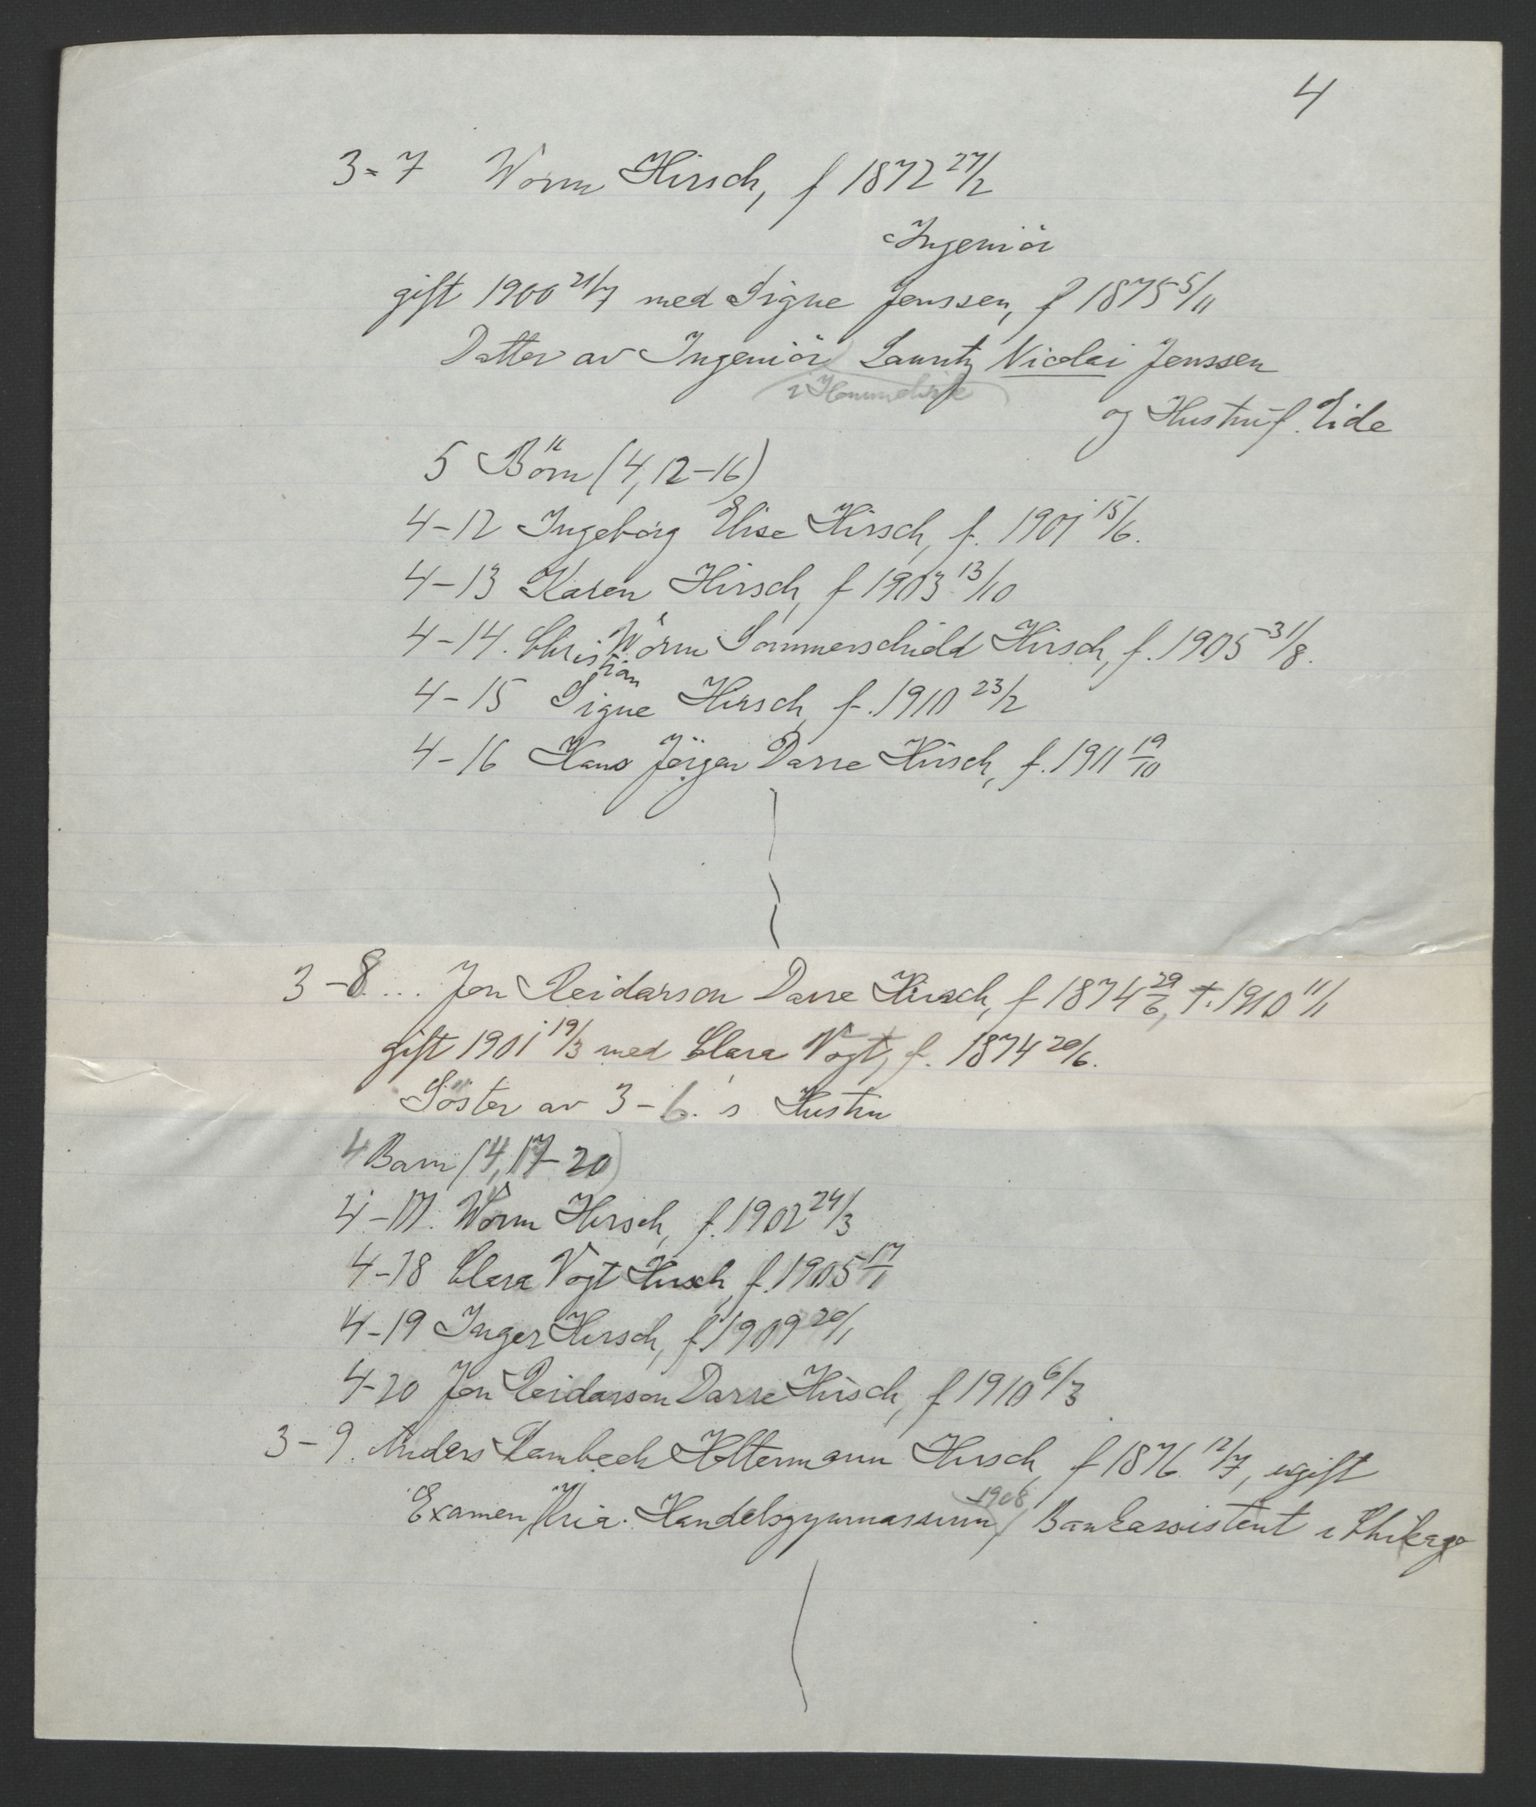 4
3-7 Worm Hirsch, f 1872 27/2
Ingeniör
gift 1900 21/7 med Signe Jenssen, f 1875 5/11
Datter av Ingeniör Lauritz Nicolai Jenssen
i Hommelvik
og Hustru f. Eide
5 Börn (4, 12-16)
4-12 Ingeborg Elise Hirsch, f. 1901 15/6.
4-13 Karen Hirsch, f 1903 13/10
4-14. Christian Worm Sommerschield Hirsch, f. 1905 31/8.
4-15 Signe Hirsch, f. 1910 23/2
4-16 Hans Jörgen Darre Hirsch, f. 1911 19/10
3-8... Jon Reidarson Darre Hirsch, f 1874 29/6, †. 1910 11/1
gift 1901 19/3 med Clara Vogt, f. 1874 20/6.
Söster av 3-6.'s Hustru
4 Barn (4, 17-20)
4-17. Worm Hirsch, f. 1902 24/3
4-18 Clara Vogt Hirsch, f. 1905 17/1
4-19 Inger Hirsch, f. 1909 20/1
4-20 Jon Reidarson Darre Hirsch, f 1910 6/3
3-9. Anders Rambech Holtermann Hirsch, f 1876 12/7, ugift
Examen Kria. Handelsgymnasium 1908, Bankassistent i Chikago